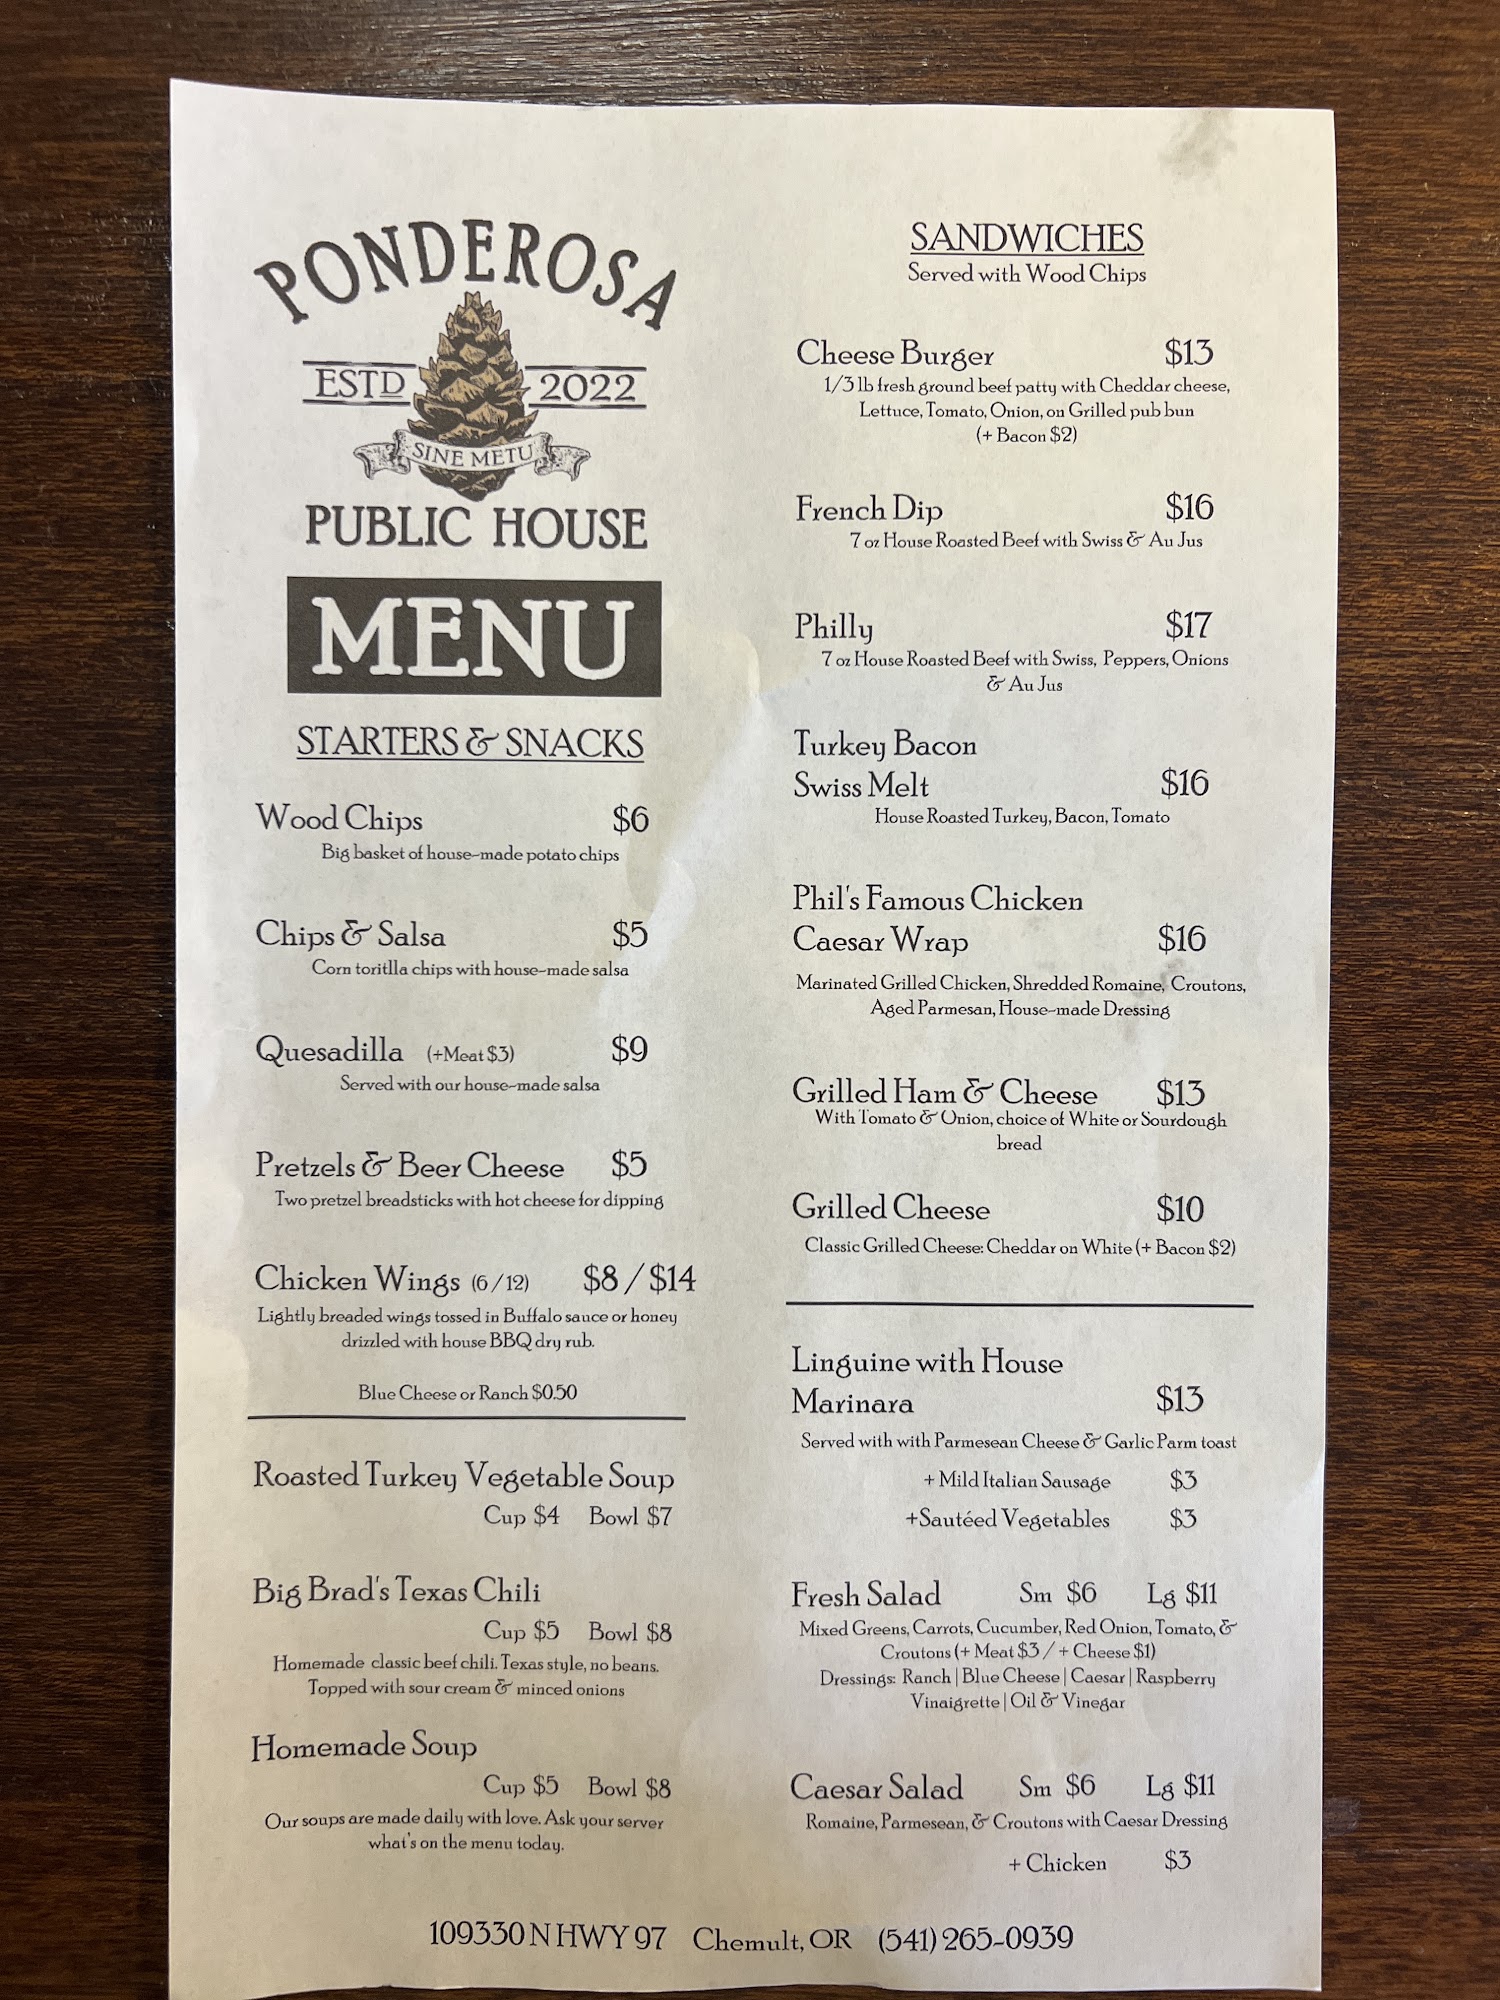 PONDEROSA
ESTD 2022
SINE METU
PUBLIC HOUSE
MENU
STARTERS & SNACKS
Wood Chips $6
Big basket of house-made potato chips
Chips & Salsa $5
Corn toritlla chips with house-made salsa
Quesadilla (+Meat $3) $9
Served with our house-made salsa
Pretzels & Beer Cheese $5
Two pretzel breadsticks with hot cheese for dipping
Chicken Wings (6/12) $8/$14
Lightly breaded wings tossed in Buffalo sauce or honey
drizzled with house BBQ dry rub.
Blue Cheese or Ranch $0.50
Roasted Turkey Vegetable Soup
Cup $4 Bowl $7
Big Brad's Texas Chili
Cup $5 Bowl $8
Homemade classic beef chili. Texas style, no beans.
Topped with sour cream & minced onions
Homemade Soup
Cup $5 Bowl $8
Our soups are made daily with love. Ask your server
what's on the menu today.
SANDWICHES
Served with Wood Chips
Cheese Burger $13
1/3 lb fresh ground beef patty with Cheddar cheese,
Lettuce, Tomato, Onion, on Grilled pub bun
(+ Bacon $2)
French Dip $16
7 oz House Roasted Beef with Swiss & Au Jus
Philly $17
7 oz House Roasted Beef with Swiss, Peppers, Onions
& Au Jus
Turkey Bacon
Swiss Melt $16
House Roasted Turkey, Bacon, Tomato
Phil's Famous Chicken
Caesar Wrap $16
Marinated Grilled Chicken, Shredded Romaine, Croutons,
Aged Parmesan, House-made Dressing
Grilled Ham & Cheese $13
With Tomato & Onion, choice of White or Sourdough
bread
Grilled Cheese $10
Classic Grilled Cheese: Cheddar on White (+ Bacon $2)
Linguine with House
Marinara $13
Served with with Parmesean Cheese & Garlic Parm toast
+ Mild Italian Sausage $3
+Sautéed Vegetables $3
Fresh Salad Sm $6 Lg $11
Mixed Greens, Carrots, Cucumber, Red Onion, Tomato, &
Croutons (+ Meat $3 / + Cheese $1)
Dressings: Ranch | Blue Cheese | Caesar | Raspberry
Vinaigrette | Oil & Vinegar
Caesar Salad Sm $6 Lg $11
Romaine, Parmesean, & Croutons with Caesar Dressing
+ Chicken $3
109330 N HWY 97 Chemult, OR (541) 265-0939